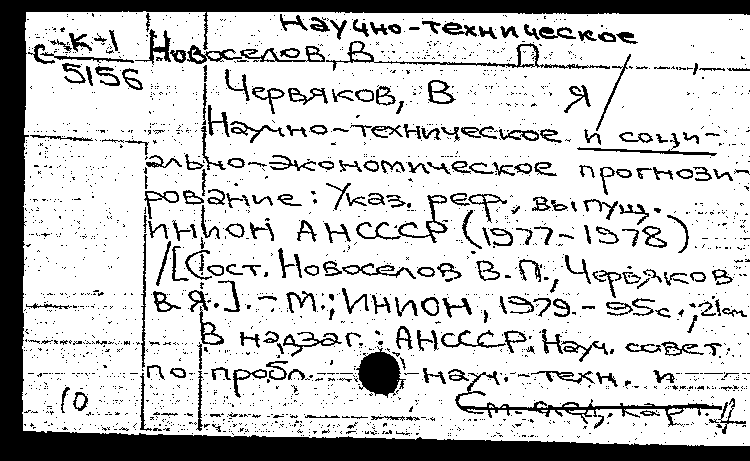 Научно-техническое
с-к-1
5156
Новоселов, В П
Червяков, В Я
Научно-техническое и соци-
ально-экономическое прогнози-
рование: Указ. реф., выпущ.
ИНИОН АНСССР (1977-1978)
/[Сост. Новоселов В.П., Червяков
В.Я.]. - М.; ИНИОН, 1979. - 95с.; 21см
В надзаг.: АНСССР; Науч. совет
по пробл. науч.-техн. и
См. след. карт.
10